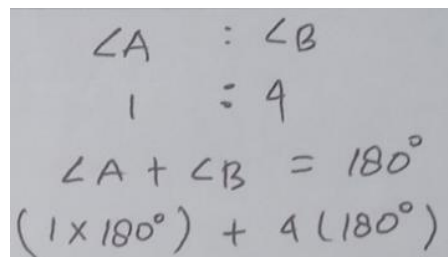 ∠A : ∠B
1 : 4
∠A + ∠B = 180°
(1 × 180°) + 4 (180°)